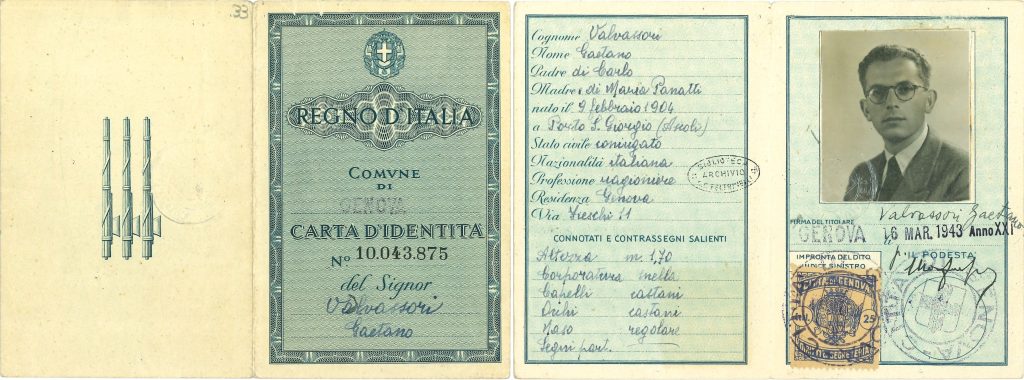 33
REGNO D'ITALIA
COMVNE
DI
GENOVA
CARTA D'IDENTITA
No 10.043.875
del Signor
Valvassori
Gaetano
Cognome Valvassori
Nome Gaetano
Padre di Carlo
Madre di Maria Panatti
nato il 9 febbraio 1904
a Porto S. Giorgio (Ascoli)
Stato civile coniugato
Nazionalità italiana
Professione ragioniere
Residenza Genova
Via Fieschi 11
BIBLIOTECA
ARCHIVIO
CONNOTATI E CONTRASSEGNI SALIENTI
Altezza m. 1,70
Corporatura snella
Capelli castani
Occhi castani
Naso regolare
Segni part.
FIRMA DEL TITOLARE
Valvassori Gaetano
GENOVA 16 MAR. 1943 Anno XXI
IMPRONTA DEL DITO
INDICE SINISTRO
IL PODESTÀ
CITTÀ DI GENOVA
25
DIRITTI DI SEGRETERIA